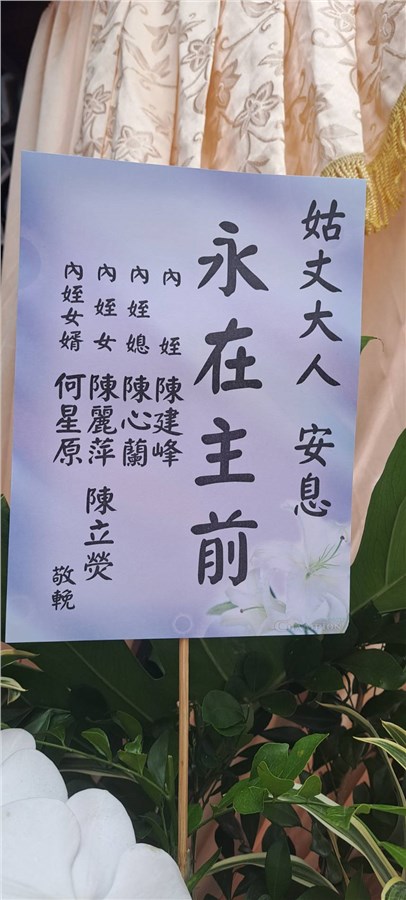 姑丈大人 安息
永在主前
內姪 陳建峰
內姪媳 陳心蘭
內姪女 陳麗萍 陳立熒
內姪女婿 何星原
敬輓